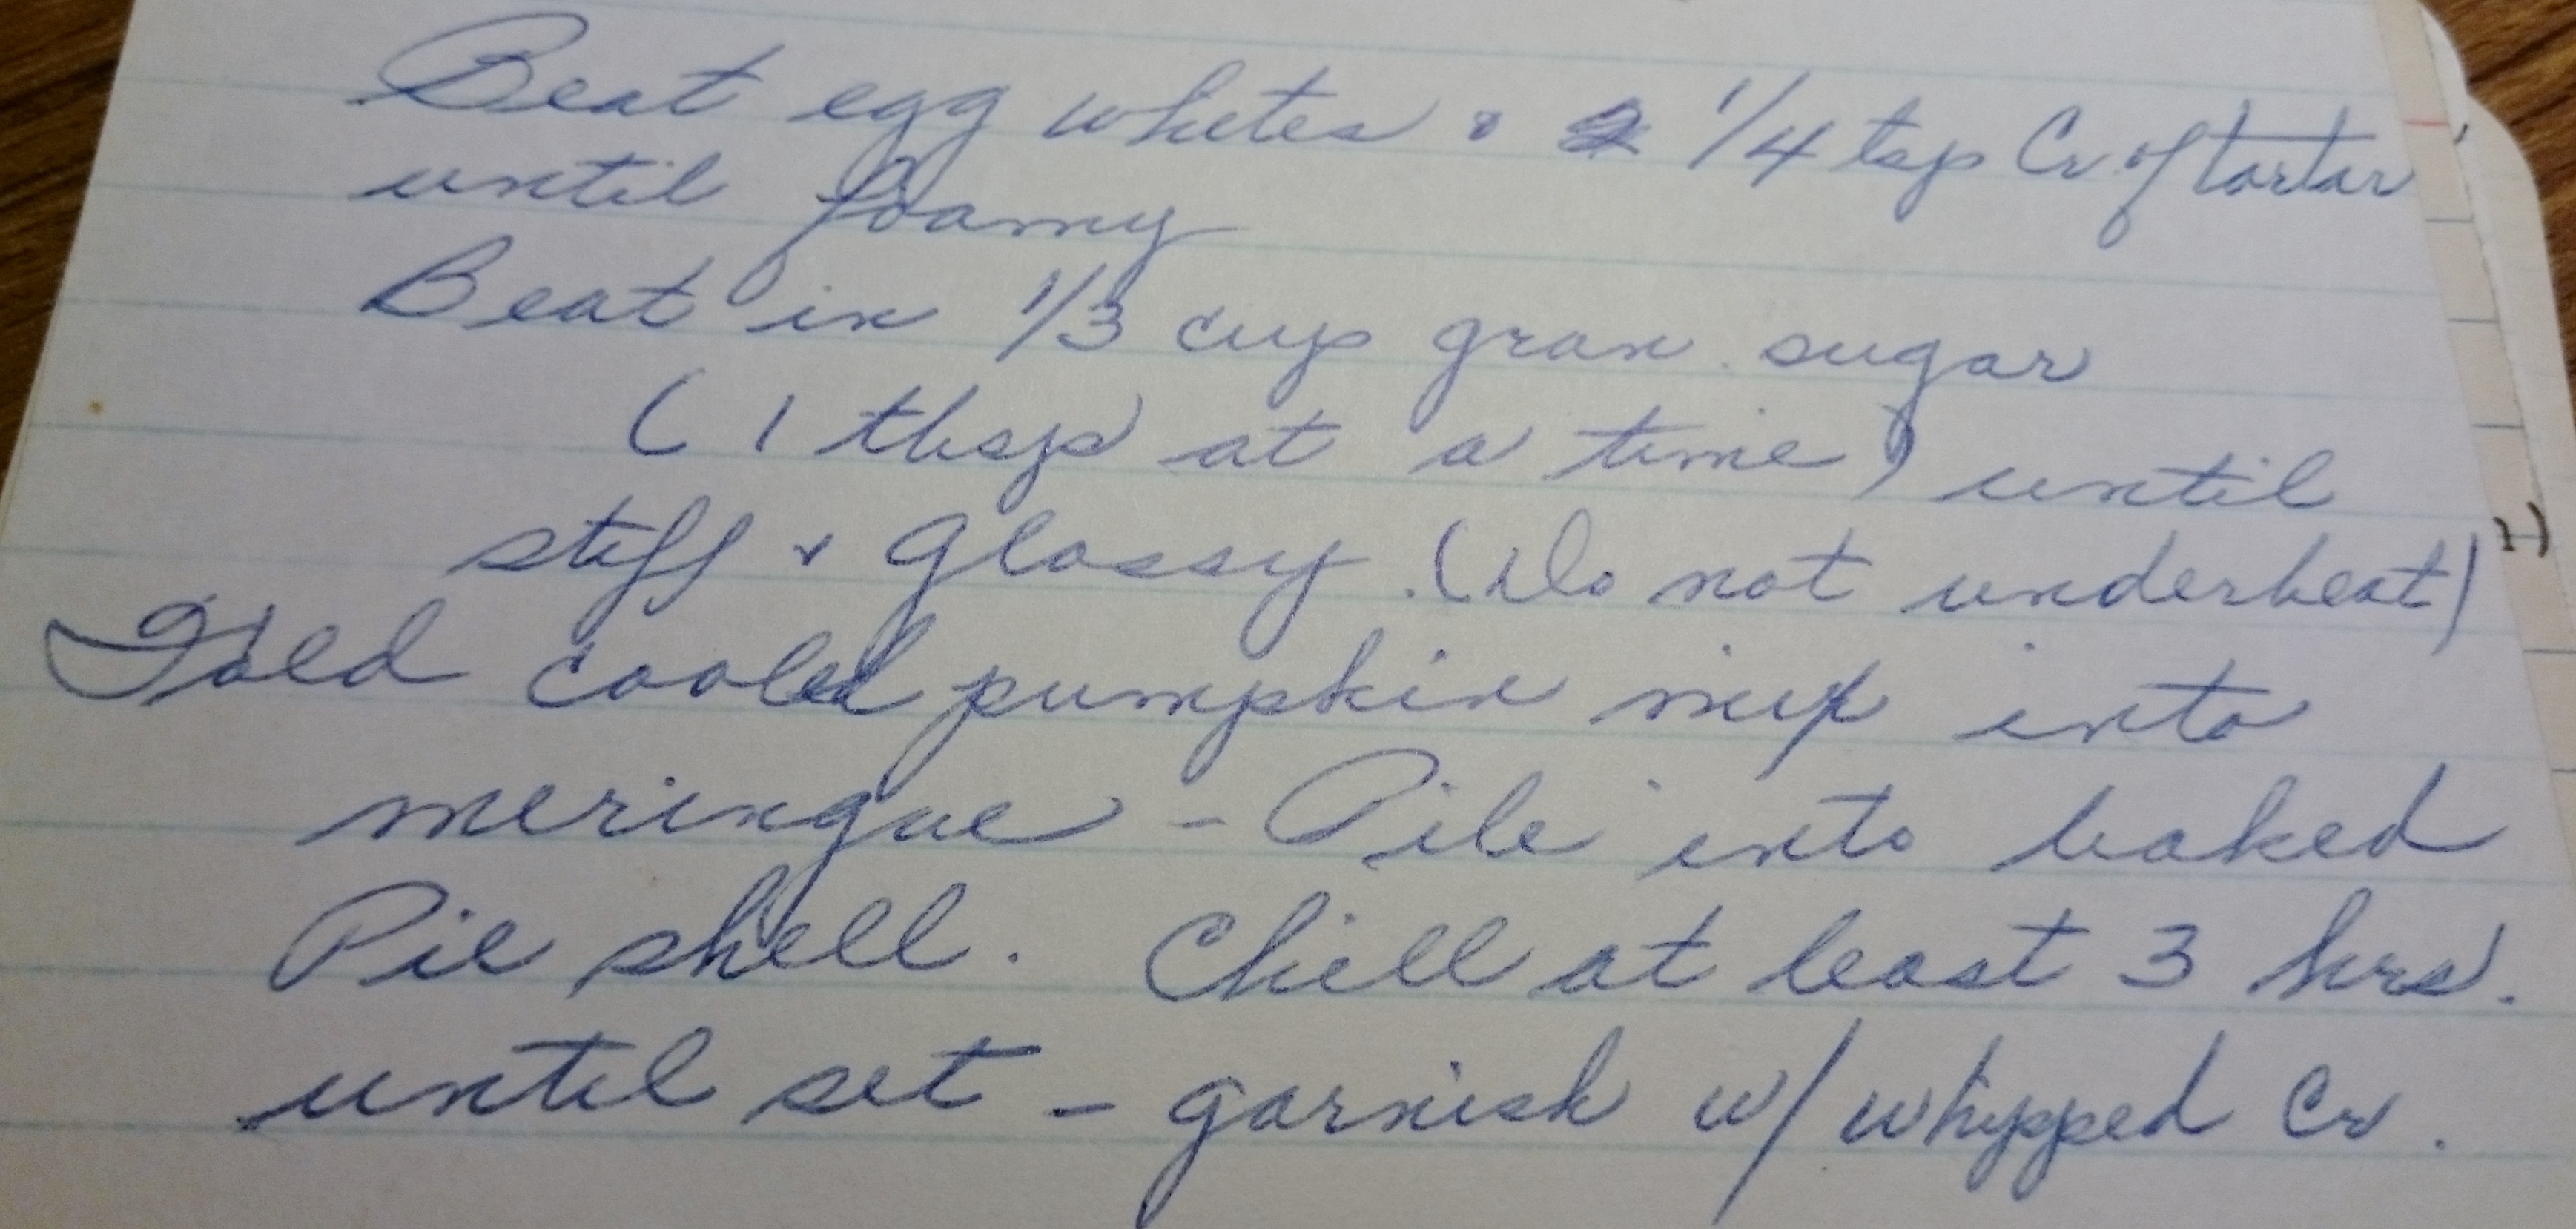 Beat egg whites & 1/4 tsp Cr of tartar
until foamy
Beat in 1/3 cup gran. sugar
(1 tbsp at a time) until
stiff & Glossy. (Do not underbeat)
Fold cooled pumpkin mix into
meringue - Pile into baked
Pie shell. Chill at least 3 hrs.
until set - garnish w/ whipped Cr.